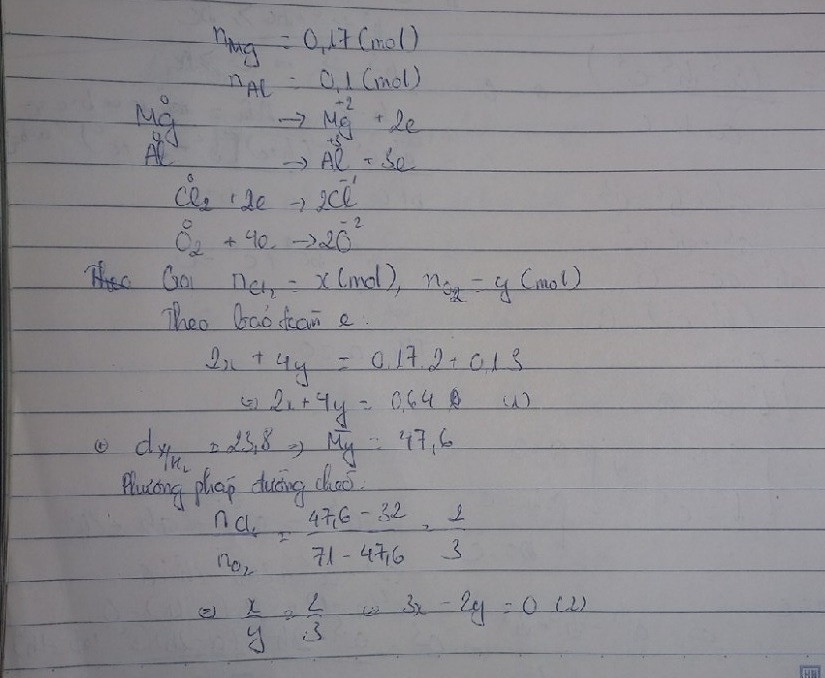 nMg = 0,17 (mol)
nAl = 0,1 (mol)
Mg⁰ → Mg⁻² + 2e
Al⁰ → Al⁺³ + 3e
Cl₂⁰ + 2e → 2Cl⁻¹
O₂⁰ + 4e → 2O⁻²
Theo Gọi nCl₂ = x (mol), nO₂ = y (mol)
Theo bảo toàn e.
2x + 4y = 0,17.2 + 0,1.3
⇔ 2x + 4y = 0,64 (1)
dY/H₂ = 23,8 ⇒ My = 47,6
Phương pháp đường chéo.
nCl₂/nO₂ = (47,6 - 32)/(71 - 47,6) = 2/3
⇔ x/y = 2/3 ⇔ 3x - 2y = 0 (2)